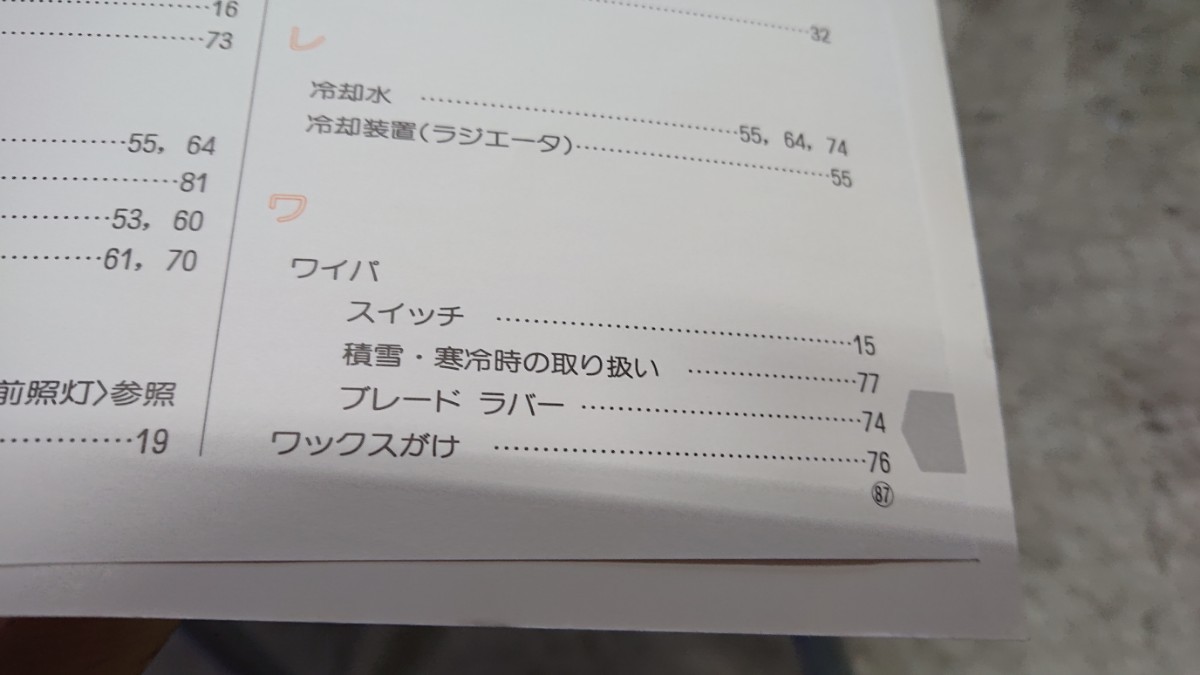 16
73
55, 64
81
53, 60
61, 70
前照灯〉参照
19
32
レ
冷却水 55, 64, 74
冷却装置(ラジエータ) 55
ワ
ワイパ
スイッチ 15
積雪・寒冷時の取り扱い 77
ブレード ラバー 74
ワックスがけ 76
87